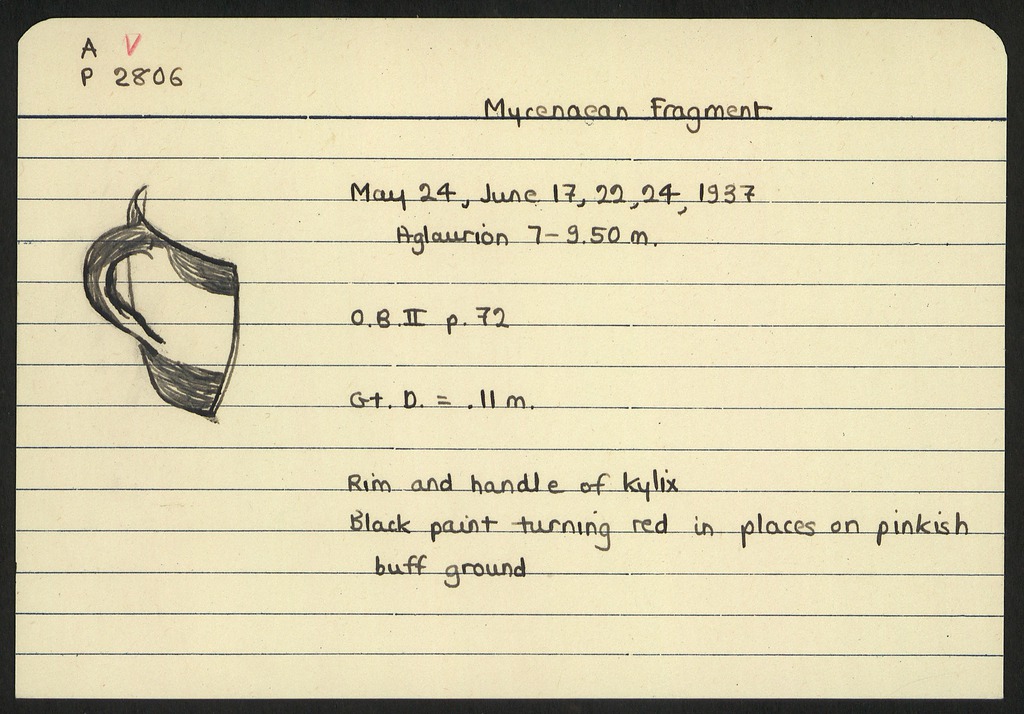 A V
P 2806
Mycenaean Fragment
May 24, June 17, 22, 24, 1937
Aglaurion 7-9.50 m.
O.B.II p. 72
Gt. D. = .11 m.
Rim and handle of kylix
Black paint turning red in places on pinkish
buff ground